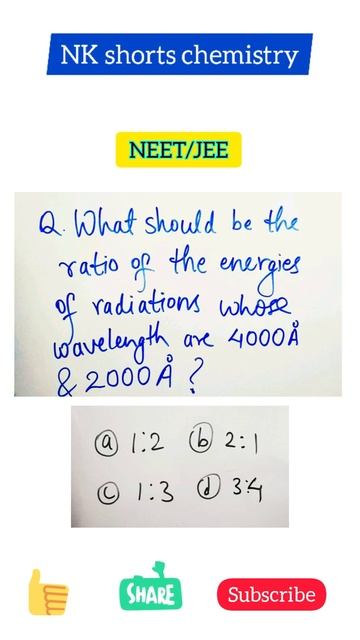 NK shorts chemistry
NEET/JEE
Q. What should be the
ratio of the energies
of radiations whose
wavelength are 4000Å
& 2000Å ?
ⓐ 1:2 ⓑ 2:1
ⓒ 1:3 ⓓ 3:4
SHARE
Subscribe